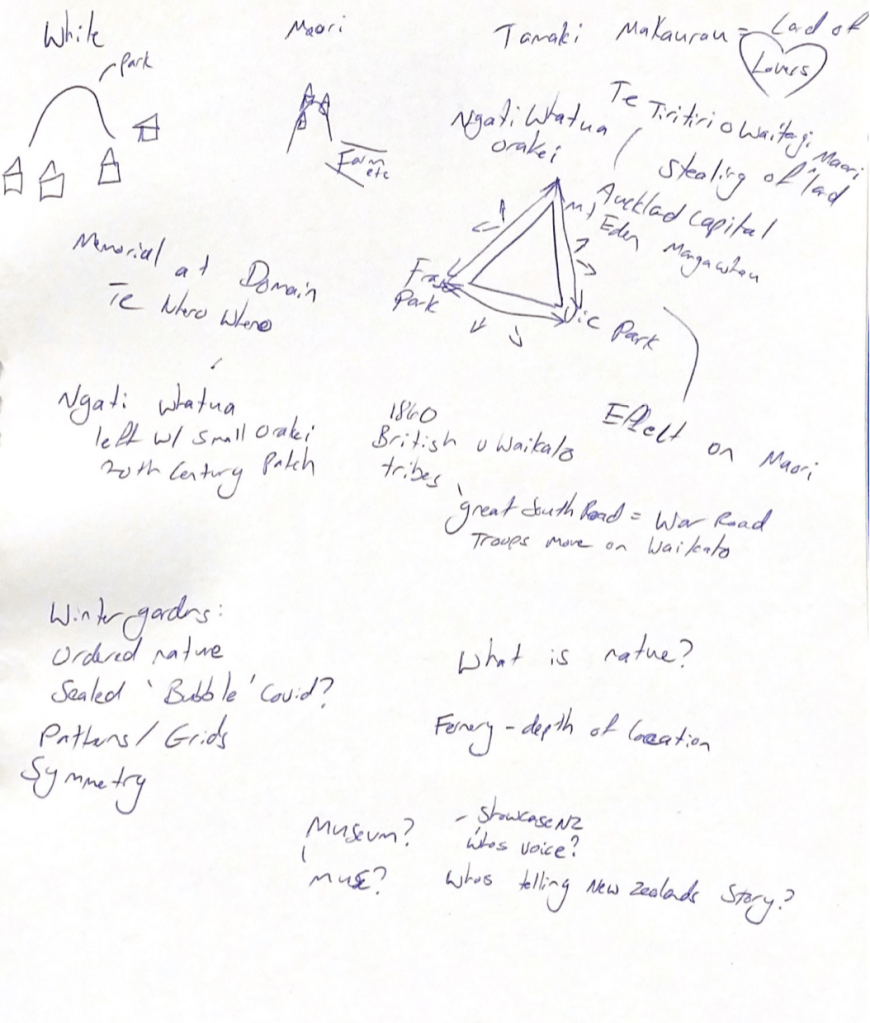 White
Park
Maori
Farm
etc
Tamaki Makaurau = Lad of
Lovers
Ngati Whatua
Orakei
Te Tiritiri o Waitagi
Stealing of Maori lad
Aucklad Capital
Mt Eden Mangawhau
Park
Vic Park
Effelt on Maori
Memorial at Domain
Te Whero Whero
Ngati Whatua
left w/ small Orakei
20th Century Patch
1860
British v Waikato
tribes
great South Road = War Road
Troups move on Waikato
Winter gardns:
Ordered nature
Sealed 'Bubble' Covid?
Patterns / Grids
Symmetry
What is nature?
Fernery - depth of location
Museum?
Muse?
- Showcase NZ
Whos voice?
Whos telling New Zealands Story?